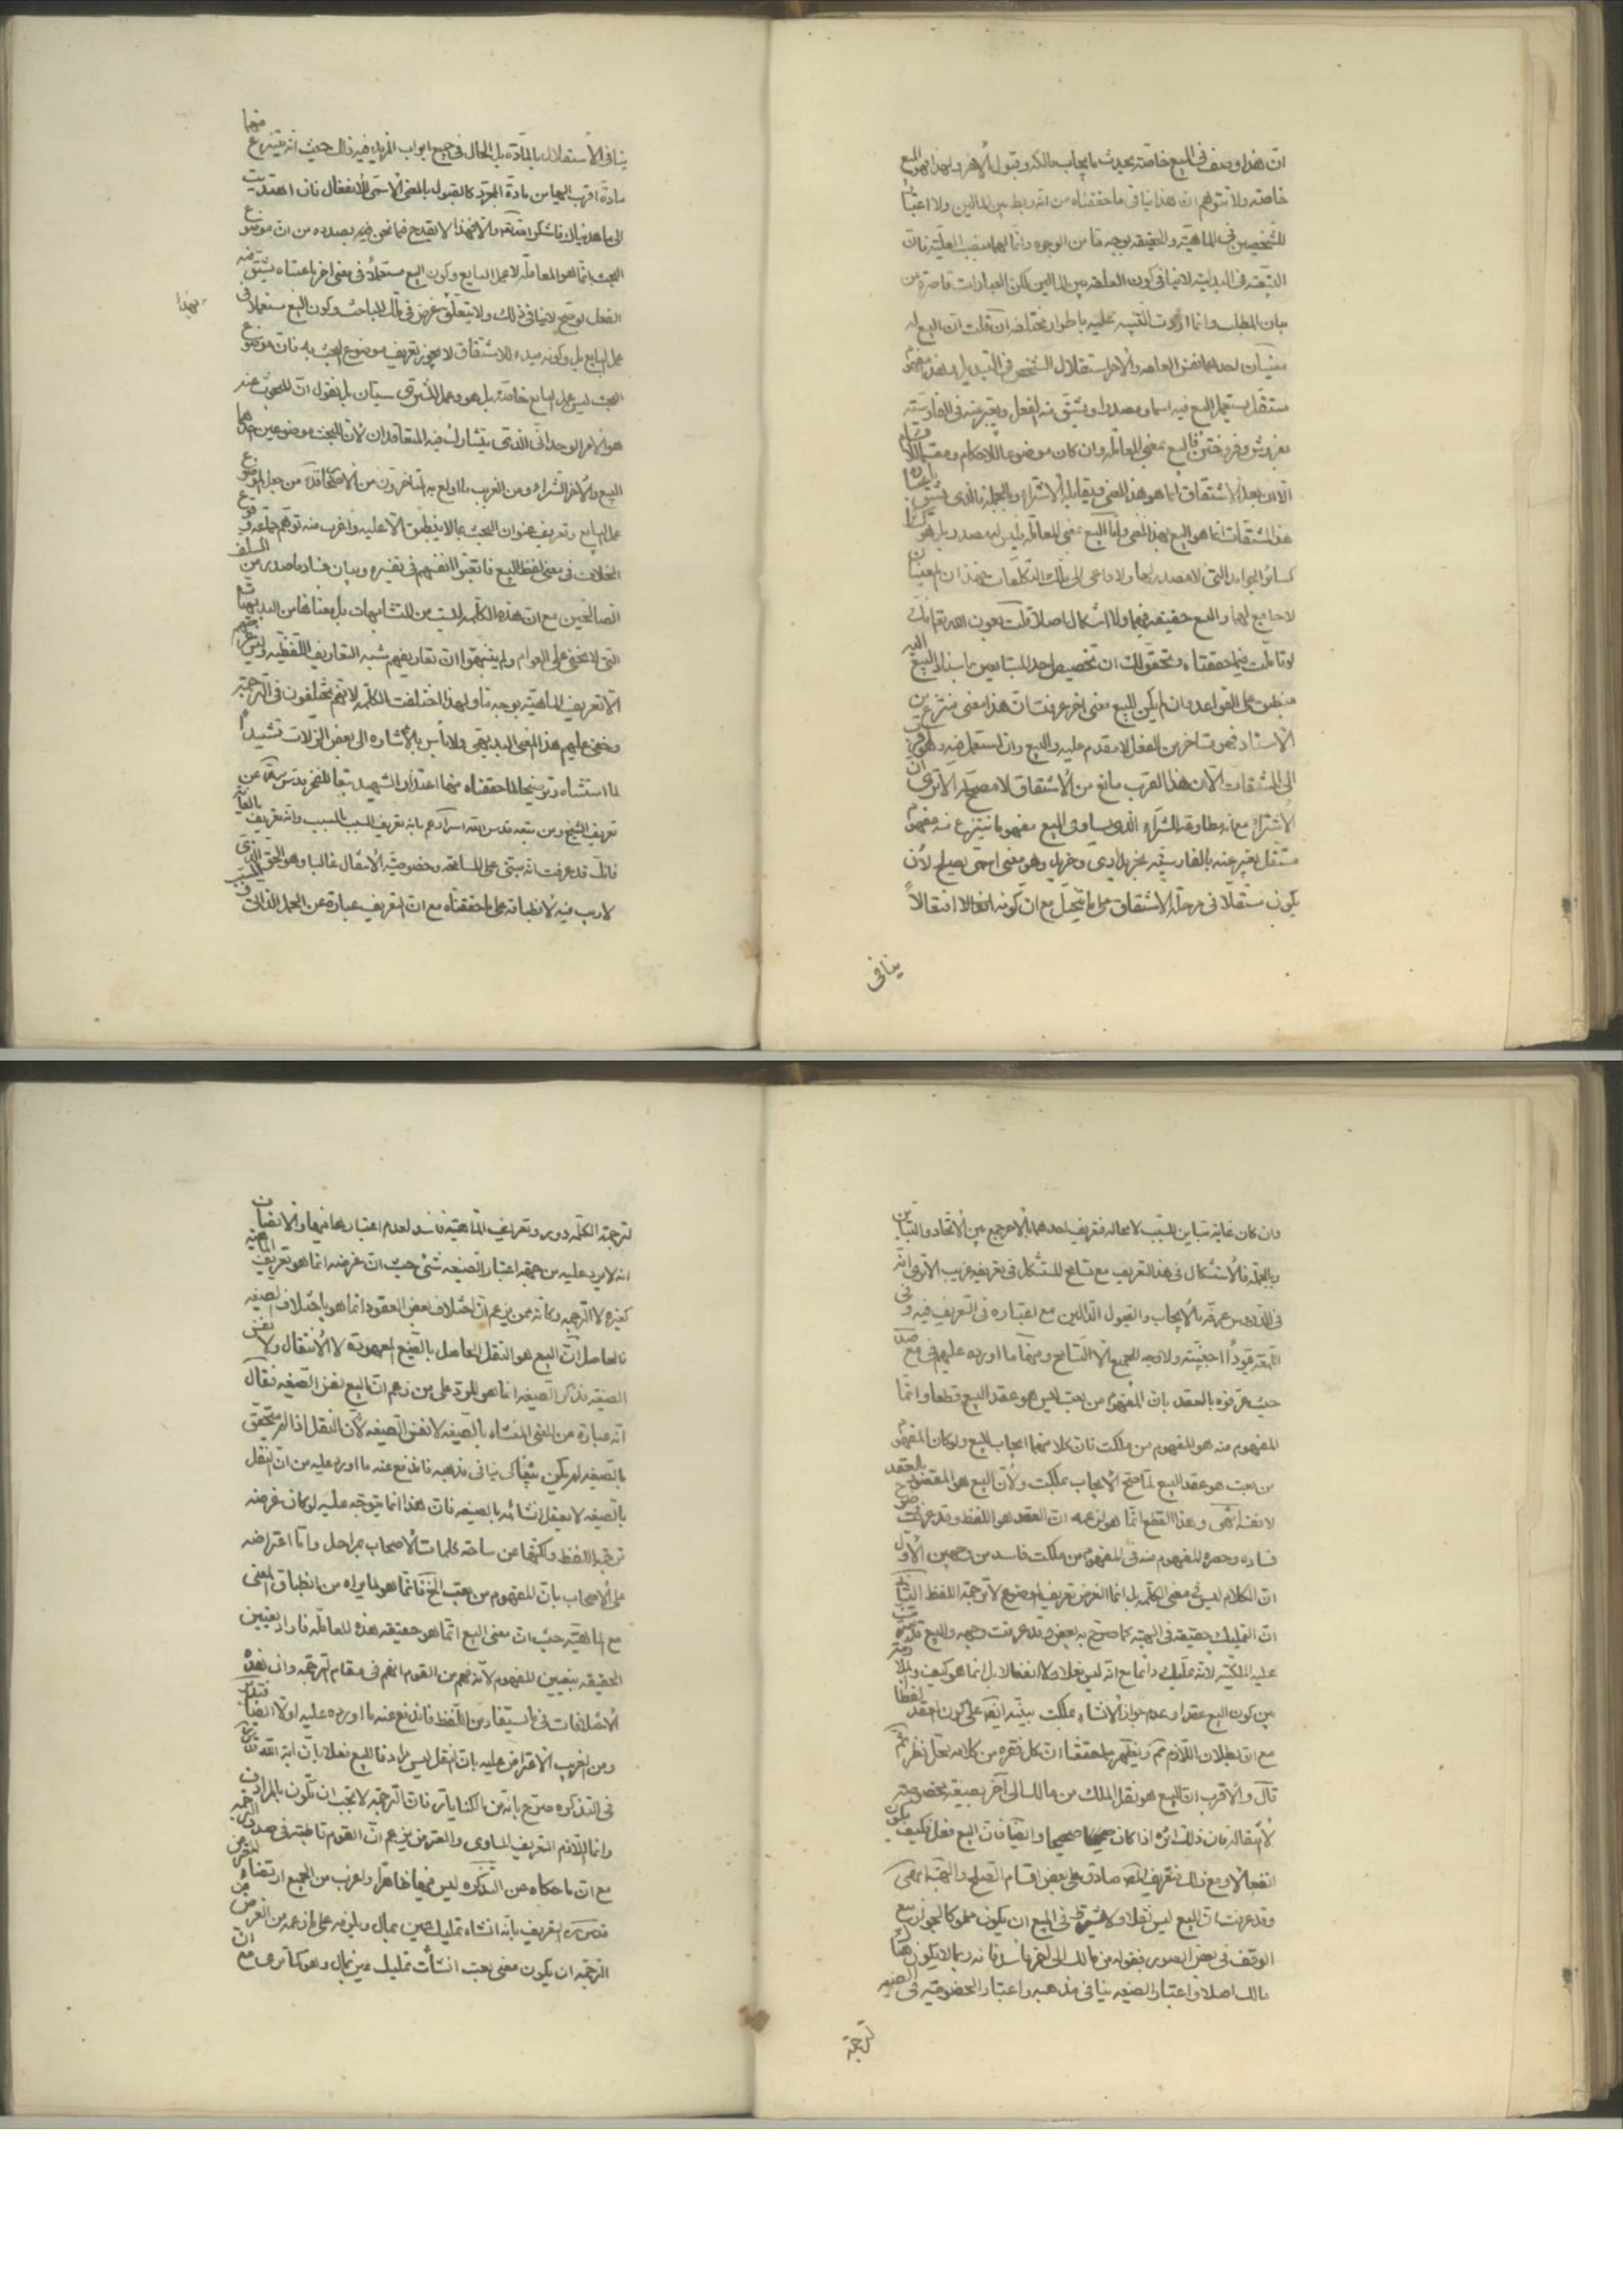 ان هذا وصف في البيع خاصة يحدث بايجاب مالكه وقبول الاخر ولهذا البيع
خاصة ولا تتوهم ان هذا ينافي ما حققناه من انه ربط بين المالين ولا اعتبار
للشخصين في الماهية والحقيقة بوجه ما من الوجوه وانما لهما منصب العلية فان
في البداية لا ينافي كون العلقة بين المالين لكن العبارات قاصرة عن
بيان المطلب وانما اردت التنبيه عليه باطوار مختلفة ان قلت ان البيع له
معنيان احدهما نفس المعاملة والاخر استقلال الشخص في التبديل وهذا مفهوم
مستقل يستعمل البيع فيه اسما ومصدرا ويشتق منه الفعل ويعبر عنه في الفارسية
بفروش وفروختن فالبيع بمعنى المعاملة وان كان موضوعا للاحكام ومقسما للاقسام
الا ان مبدأ الاشتقاق انما هو هذا المعنى ويقابله الاشتراء وبالجملة فالذي يشتق باعتباره
هذه المشتقات انما هو البيع بهذا المعنى واما البيع بمعنى المعاملة فليس له مصدر بل هو
كسائر الجوامد التي لا مصدر لها ولا داعي الى تلك التكلفات فهذان المعنيان
لا جامع لهما والبيع حقيقة فيهما ولا اشكال اصلا قلت بعون الله تعالى
لو تاملت فيما حققناه وتحقق لك ان تخصيص احد المتبايعين باسناد البيع اليه
منطبق على القواعد وان لم يكن للبيع معنى اخر عرفت ان هذا معنى منتزع من
الاسناد فهو متاخر عن الفعل لا مقدم عليه والبيع وان استعمل فيه وهو اقرب
الى المشتقات الا ان هذا القرب مانع من الاشتقاق لا مصحح له الا ترى ان
الاشتراء مع انه مطاوعة الشراء الذي يساوق البيع مفهوما ينتزع منه مفهوم
مستقل يعبر عنه بالفارسية بخريداري وخريد وهو معنى اسمي يصلح لان
يكون مستقلا في مرحلة الاشتقاق على ما يتخيل مع ان كونه انفعالا افتعالا
ينافي
ينافي الاستقلال بالمادة بل الحال في جميع ابواب المزيد فيه ذلك حيث انه ينتزع منها
مادة اقرب اليها من مادة المجرد كالقبول بالمعنى الاسمي للانفعال فان اهتديت
الى ما هديناك فاشكر الله والا فهذا لا يقدح فيما نحن فيه بصدده من ان موضوع
البحث انما هو المعاملة لا عمل البايع وكون البيع مستعملا في معنى اخر باعتباه يشتق منه
الفعل لو صح لا ينافي ذلك ولا يتعلق غرض في تلك المباحث وكون البيع مستعملا في
بهذا
عمل البايع بل وكونه مبدء للاشتقاق لا يجوز تعريف موضوع البحث به فان موضوع
البحث ليس عمل البايع خاصة بل هو وعمل المشتري سيان بل نقول ان المبحوث عنه
هو الامر الوحداني الذي يتشارك فيه المتعاقدان لا ان للبحث موضوعين احدهما
البيع والاخر الشراء ومن الغريب ما اولع به المتاخرون من الاصحاب من جعل الموضوع
عمل البايع وتعريف عنوان البحث بما لا ينطبق الا عليه واغرب منه توهم جماعة وقوع
الخلاف في معنى لفظ البيع فاتعبوا انفسهم في تفسيره وبيان فساد ما صدر من السلف
الصالحين مع ان هذه الكلمة ليست من المتشابهات بل معناها من البديهيات
التي لا تخفى على العوام ولم يتنبهوا ان تعاريفهم شبه التعاريف اللفظية وليس غرضهم
الا تعريف الماهية بوجه ما ولهذا اختلفت الكلمة لا انهم يختلفون في الترجمة
وخفي عليهم هذا المعنى البديهي ولا باس بالاشارة الى بعض الزلات تشييدا
لما استشاه وتوضيحا لما حققناه منها اعتذار الشهيد تبعا للفخر قدس سرهما عن
تعريف الشيخ ومن تبعه قدس الله اسرارهم بانه تعريف السبب بالمسبب وانه تعريف بالغاية
فانك قد عرفت انه مبتنى على المسامحة وخصوصية الانتقال غالبا وهو الحق الذي
لا ريب فيه لانطباقه على ما حققناه مع ان التعريف عبارة عن الحمل الذاتي
وان كان غاية تباين السبب لا محالة فتعريف احدهما بالاخر جمع بين الاتحاد والتباين
وبالجملة فالاستشكال في هذا التعريف مع تسامح المستشكل في تعريفه غريب الا ترى انه
في الدروس عرفه بالايجاب والقبول الدالين مع اعتباره في التعريف فيه وفي
اللمعة قيودا اجنبية ولا وجه للجميع الا التسامح ومنها ما اورده عليهم في مع صد
حيث عرفوه بالعقد بان المفهوم من بعت ليس هو عقد البيع قطعا وانما
المفهوم منه هو المفهوم من ملكت فان كلا منهما ايجاب البيع ولو كان المفهوم
من بعت هو عقد البيع لما صح الايجاب بملكت ولان البيع هو المقصود بالعقد
لا نفسه انتهى وهذا القطع انما هو لزعمه ان العقد هو اللفظ وقد عرفت وضوح
فساده وحصره المفهوم منه في المفهوم من ملكت فاسد من وجهين الاول
ان الكلام ليس في معنى الكلمة بل انما الغرض تعريف الموضوع لا ترجمة اللفظ الثاني
ان التمليك حقيقة في الهبة كما صرح به بعض وقد عرفت وجهه والبيع تترتب
عليه الملكية لا انه تمليك دائما مع انه ليس فعلا ولا انفعالا بل انما هو كيف والملازمة
بين كون البيع عقدا وعدم جواز الانشاء بملكت مبنية ايضا على كون العقد لفظا
مع ان بطلان اللازم ثم ويظهر بما حققنا ان كل فقرة من كلامه محل نظر ثم
قال والاقرب ان البيع هو نقل الملك من مالك الى آخر بصيغة مخصوصة
لا انتقاله فان ذلك اثره اذا كان صحيحا وايضا فان البيع فعل فكيف يكون
انفعالا ومع ذلك فتعريف المصنف صادق على بعض اقسام الصلح والهبة انتهى
وقد عرفت ان البيع ليس نقلا ولا يشترط في المبيع ان يكون مملوكا لجواز بيع
الوقف في بعض الصور فقوله من مالك الى اخر فاسد فانه ربما لا يكون هناك
مالك اصلا واعتبار الصيغة ينافي مذهبه واعتبار الخصوصية في الصيغة
ترجمة
لترجمة الكلمة دور وتعريف الماهية فاسد لعدم اعتبارها فيها والانصاف
انه لا يرد عليه من جهة اعتبار الصيغة شئ حيث ان غرضه انما هو تعريف الماهية
كغيره لا الترجمة وكانه ممن يزعم ان اختلاف بعض العقود انما هو باختلاف الصيغة
فالحاصل ان البيع هو النقل الحاصل بالصيغ المعهودة لا الانتقال ولا نفس
الصيغة فذكر الصيغة انما هو للرد على من زعم ان البيع نفس الصيغة فقال
انه عبارة عن المعنى المنشاء بالصيغة لا نفس الصيغة لان النقل اذا لم يتحقق
بالصيغة لم يكن بيعا كي ينافي مذهبه فاندفع عنه ما اورد عليه من ان النقل
بالصيغة لا يعقل انشائه بالصيغة فان هذا انما يتوجه عليه لو كان غرضه
ترجمة اللفظ ولكنها عن ساحة كلمات الاصحاب بمراحل واما اعتراضه
على الاصحاب بان المفهوم من بعت الخ فانما هو لما يراه من انطباق المعنى
مع الماهية حيث ان معنى البيع انما هو حقيقة هذه المعاملة فاراد تعيين
الحقيقة بتعيين المفهوم لا انه فهم من القوم انهم في مقام الترجمة وان هذه
الاختلافات في ما يستفاد من اللفظ فاندفع عنه ما اورده عليه اولا ايضا فتدبر
ومن الغريب الاعتراض عليه بان النقل ليس مرادفا للبيع معللا بان اية الله
في التذكره صرح بانه من الكنايات فان الترجمة لا يجب ان تكون بالمرادف
وانما اللازم التعريف المساوي والمعترض يزعم ان القوم قاطبة في صدد الترجمة
مع ان ما حكاه عن التذكره ليس فيها ظاهرا واغرب من الجميع ارتضاء
قدس سره التعريف بانه انشاء تمليك عين بمال ويلزمه على ما زعمه من الغرض من
الترجمة ان يكون معنى بعت انشأت تمليك عين بمال وهو كما ترى مع ان